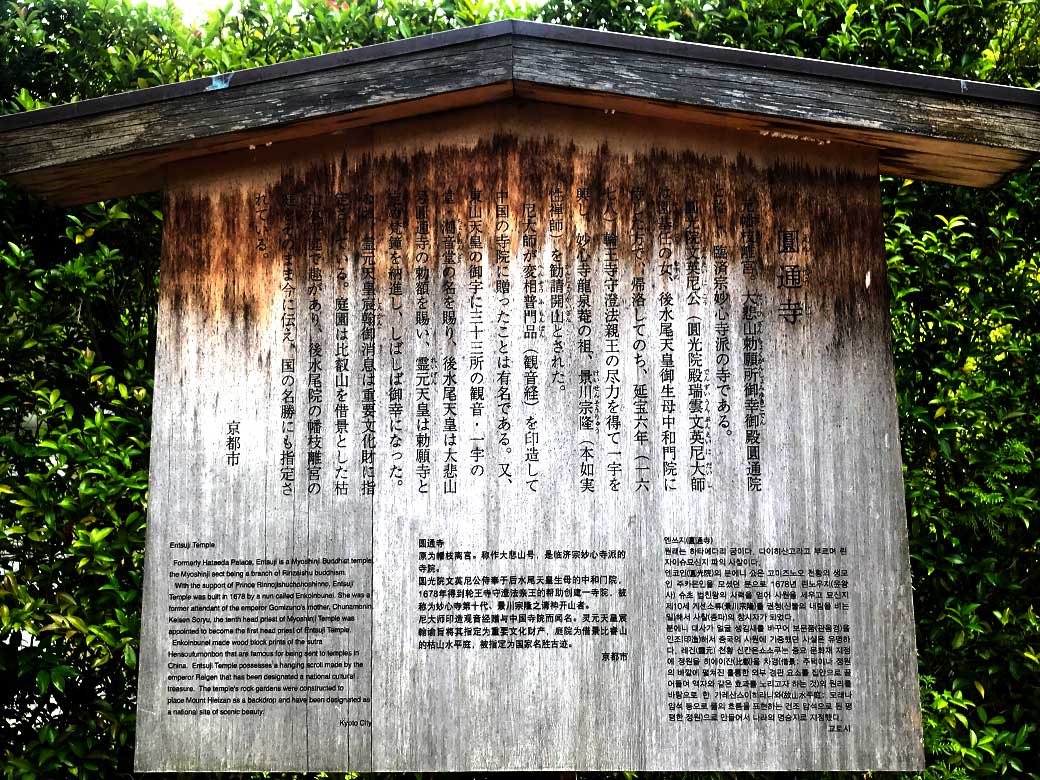 圓通寺
大悲山勅願所御幸御殿圓通院
臨済宗妙心寺派の寺である。
文英尼公（圓光院殿瑞雲文英尼大師
の女、後水尾天皇御生母中和門院に
帰洛してのち、延宝六年（一六
輪王寺守澄法親王の尽力を得て一宇を
興し、妙心寺龍泉菴の祖、景川宗隆（本如実
性禅師）を勧請開山とされた。
尼大師が変相普門品（観音経）を印造して
中国の寺院に贈ったことは有名である。又、
東山天皇の御宇に三十三所の観音・一宇の
潮音堂の名を賜り、後水尾天皇は大悲山
圓通寺の勅額を賜い、霊元天皇は勅願寺と
梵鐘を納進し、しばしば御幸になった。
霊元天皇宸翰御消息は重要文化財に指
定されている。庭園は比叡山を借景とした枯
山水平庭で趣があり、後水尾院の幡枝離宮の
庭をそのまま今に伝え、国の名勝にも指定さ
れている。
京都市
Entsuji Temple
Formerly Hataeda Palace, Entsuji is a Myoshinji Buddhist temple,
the Myoshinji sect being a branch of Rinzaishu buddhism.
With the support of Prince Rinnojishuchohoshinno, Entsuji
Temple was built in 1678 by a nun called Enkoinbunei. She was a
former attendant of the emperor Gomizuno's mother, Chunamonin.
Keisen Soryu, the tenth head priest of Myoshinji Temple was
appointed to become the first head priest of Entsuji Temple.
Enkoinbunei made wood block prints of the sutra
Hensoufumonbon that are famous for being sent to temples in
China. Entsuji Temple possesses a hanging scroll made by the
emperor Reigen that has been designated a national cultural
treasure. The temple's rock gardens were constructed to
place Mount Hieizan as a backdrop and have been designated as
a national site of scenic beauty.
Kyoto City
圆通寺
原为幡枝离宫。称作大悲山号，是临济宗妙心寺派的
寺院。
圆光院文英尼公侍奉于后水尾天皇生母的中和门院，
1678年得到轮王寺守澄法亲王的帮助创建一寺院，被
称为妙心寺第十代、景川宗隆之请神开山者。
尼大师印造观音经赠与中国寺院而闻名。灵元天皇宸
翰谕旨将其指定为重要文化财产，庭院为借景比睿山
的枯山水平庭，被指定为国家名胜古迹。
京都市
엔쓰지(圓通寺)
원래는 하타에다리 궁이다. 다이히산고라고 부르며 린
자이슈묘신지 파의 사찰이다.
엔코인(圓光院)의 분에니 쇼은 고미즈노오 천황의 생모
인 주카몬인을 모셨던 분으로 1678년 린노우지(문왕
사) 슈초 법친왕의 사력을 얻어 사원을 세우고 묘신지
제10세 게센소류(景川宗隆)를 권청(신불의 내림을 비는
일)해서 사찰(종파)의 창시자가 되었다.
분에니 대사가 얼굴 생김새를 바꾸어 보문품(관음경)을
인조(印造)해서 중국의 사원에 기증했던 사실은 유명하
다. 레겐(靈元) 천황 신칸온쇼소쿠는 중요 문화재 지정
에 정원을 히에이잔(比叡)을 차경(借景: 주택이나 정원
의 바깥에 펼쳐진 훌륭한 외부 경관 요소를 집안으로 끌
어들여 액자와 같은 효과를 노리고자 하는 것)의 원리를
바탕으로 한 가레산스이히라니와(枯山水平庭: 모래나
암석 등으로 물의 흐름을 표현하는 건조 암석으로 된 평
평한 정원)으로 만들어서 나라의 명승지로 지정했다.
교토시